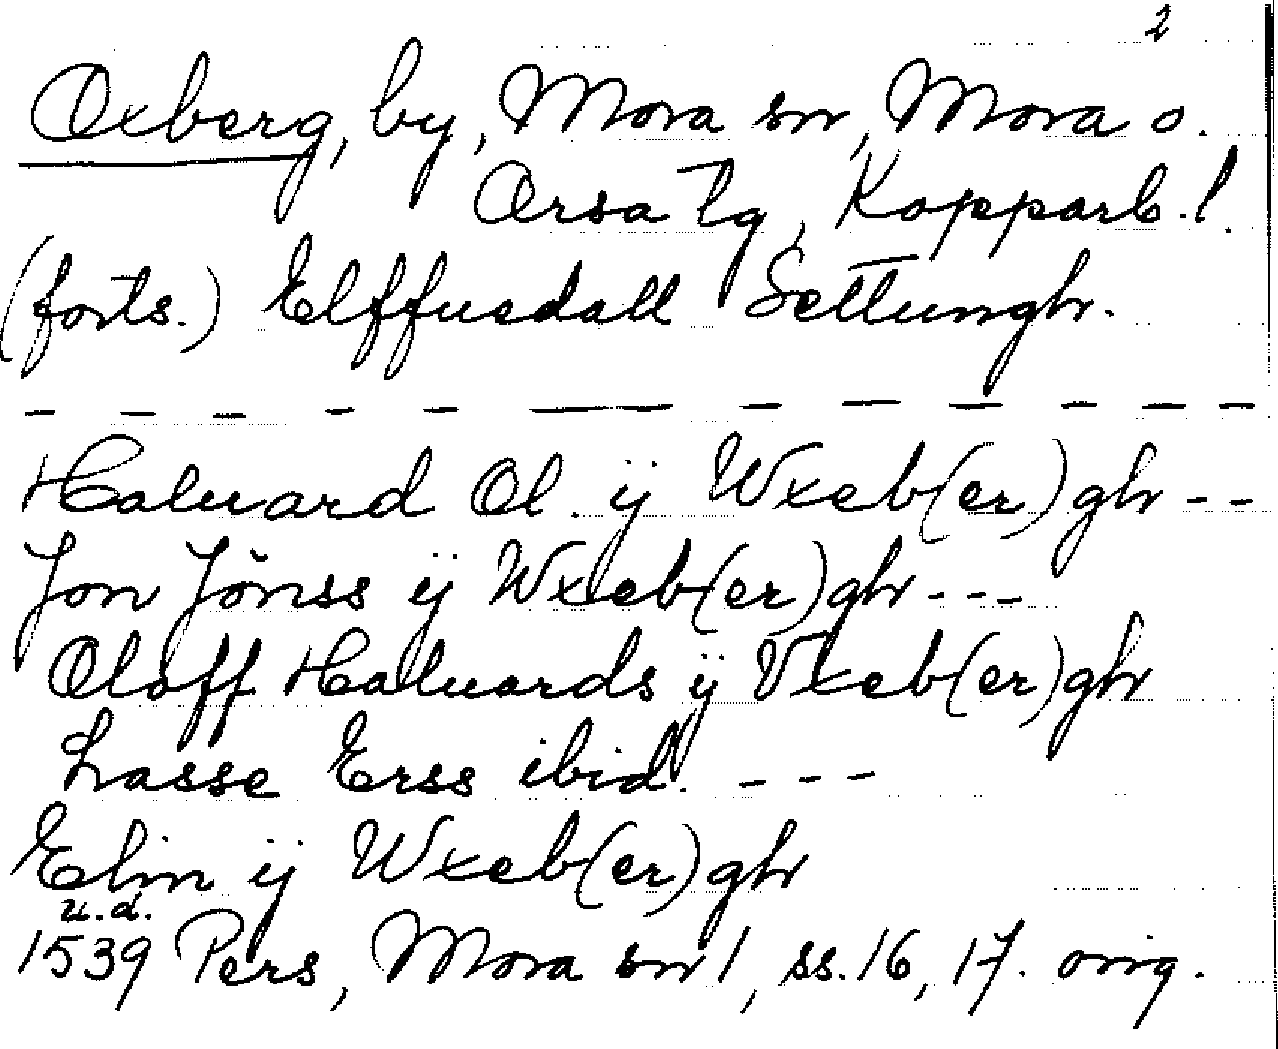 2
Oxberg, by, Mora sn, Mora o.
Orsa tg, Kopparb. l.
(forts.) Elffuedall Settungh.
- - - - - — - - - - - -
Haluard Ol. ÿ Wxeb(er)gh - -
Jon Jönss ÿ Wxeb(er)gh - - -
Oloff Haluards ÿ Vxeb(er)gh
Lasse Erss ibid. - - -
Elin ÿ Wxeb(er)gh
u.d.
1539 Pers, Mora sn 1, ss. 16, 17. orig.